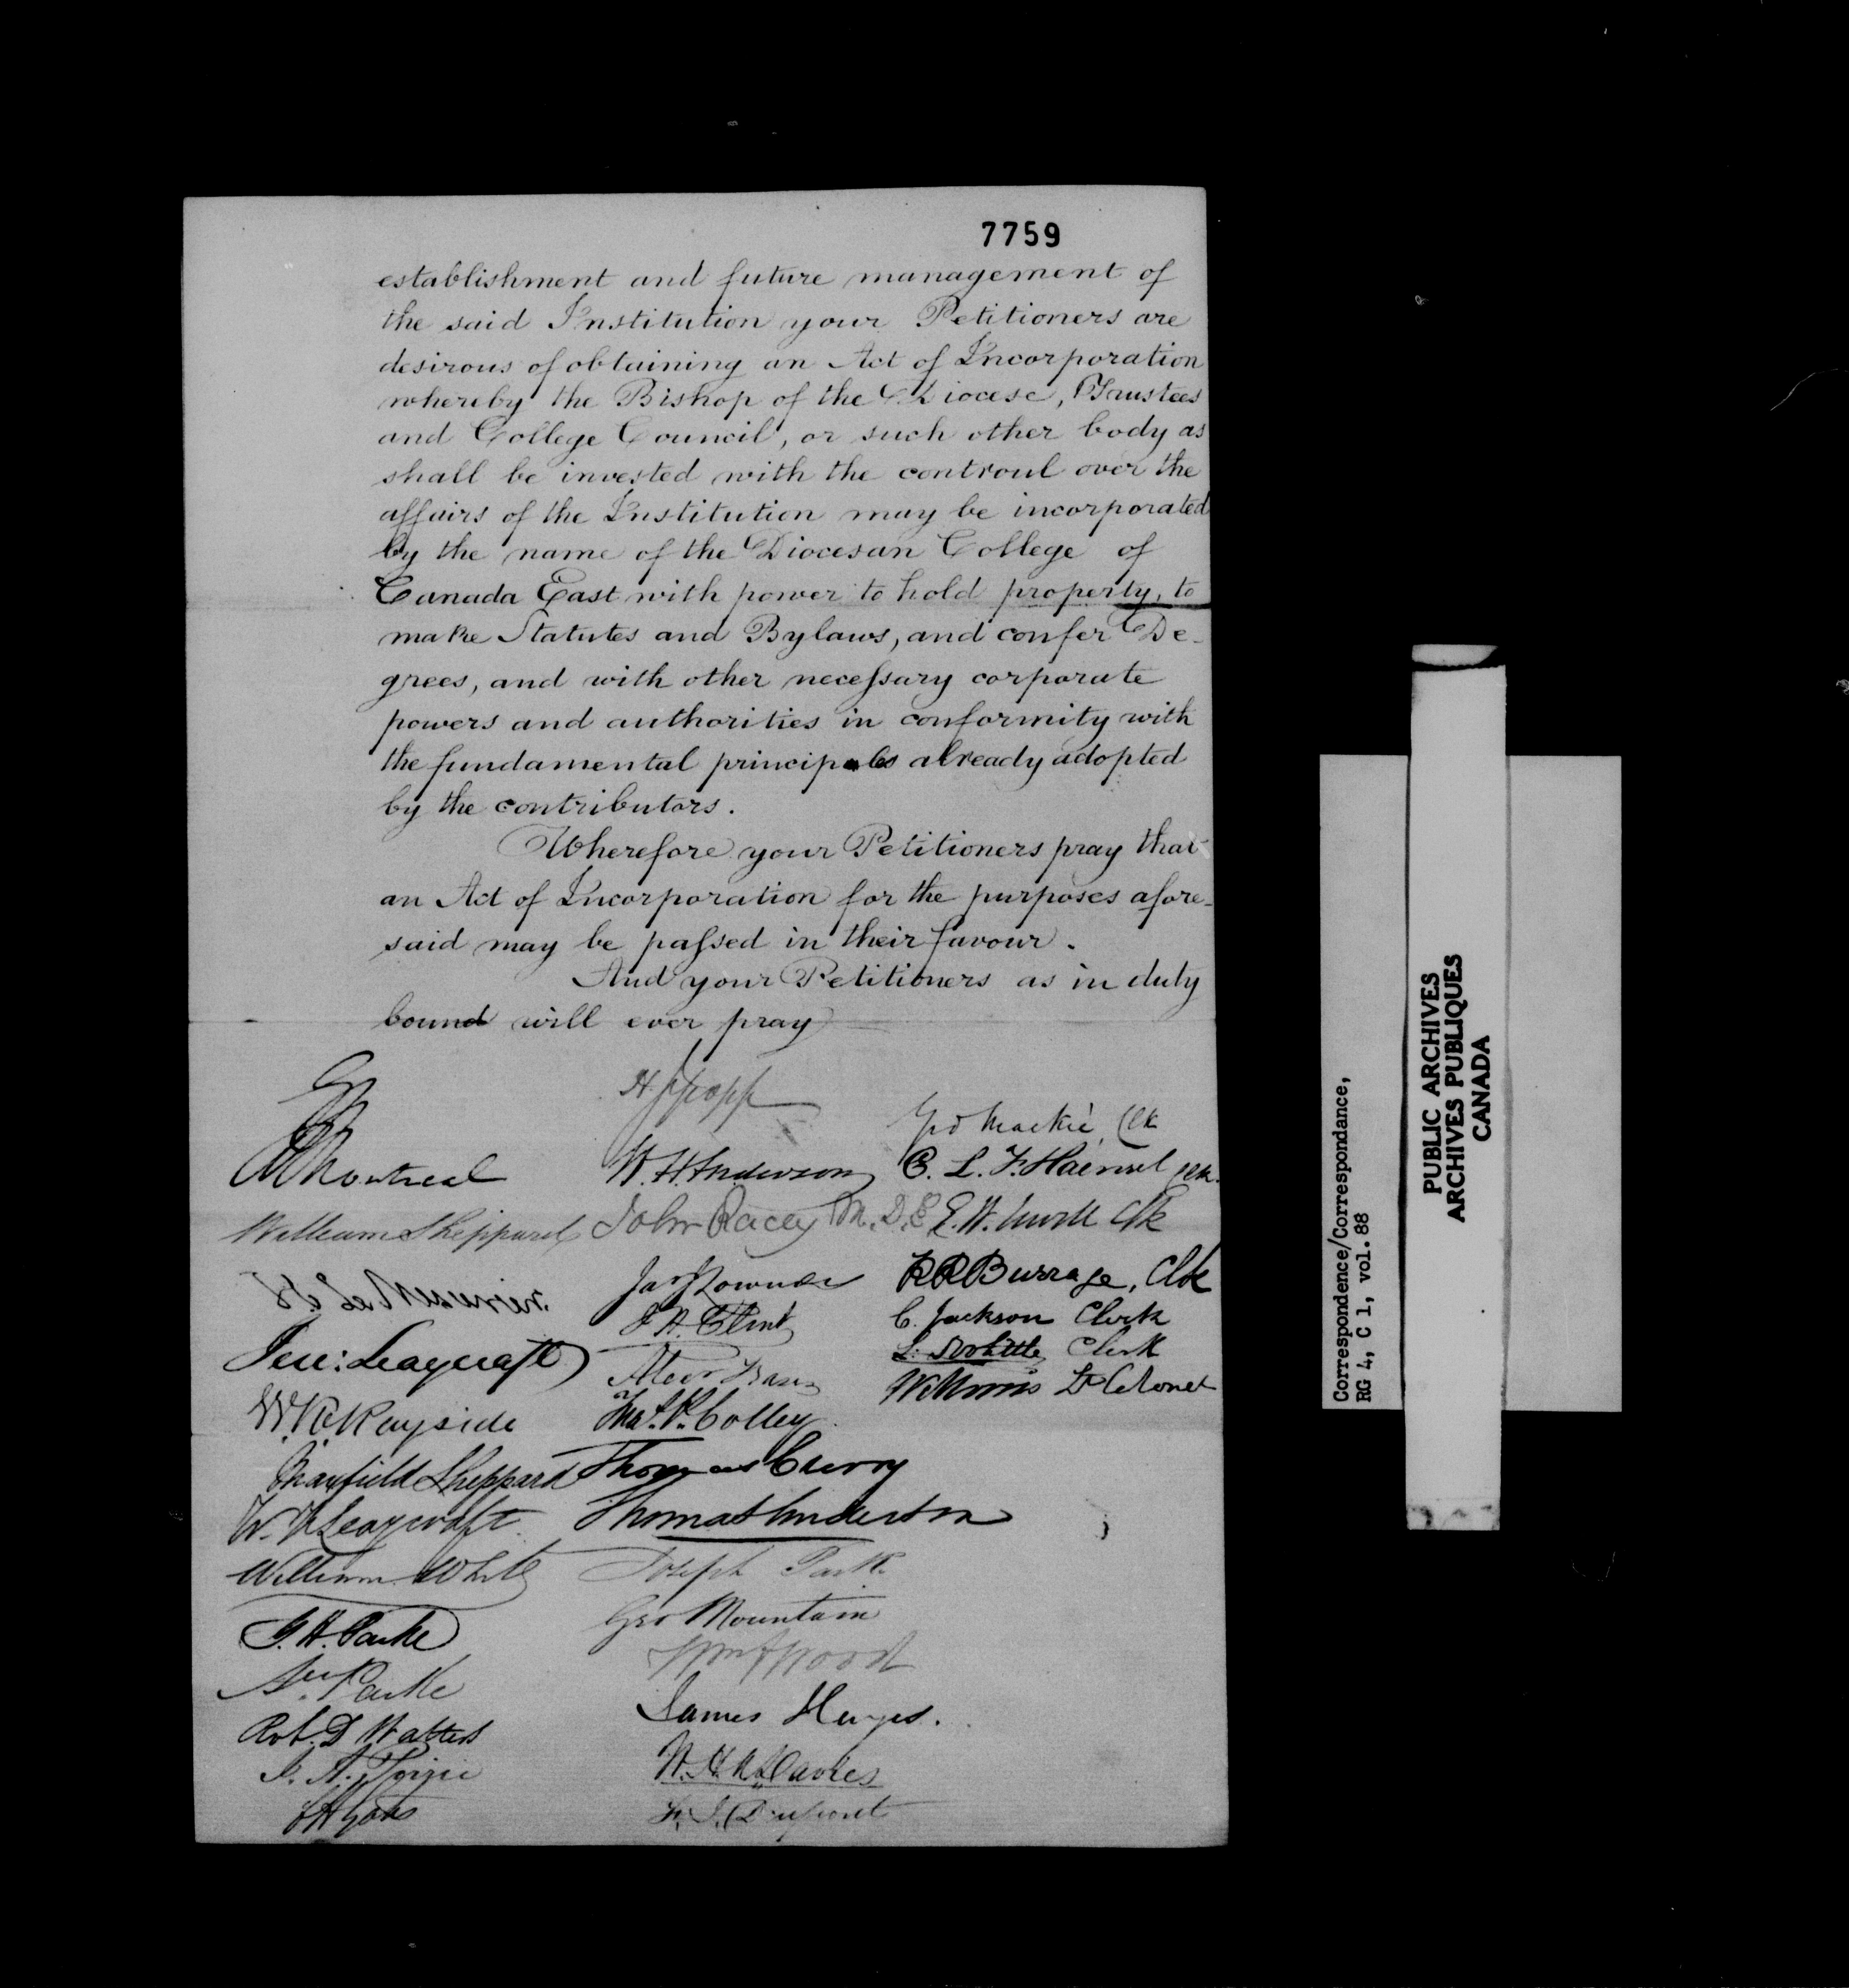 7759
establishment and future management of
the said Institution your Petitioners are
desirous of obtaining an Act of Incorporation
whereby the Bishop of the Diocese, Trustees
and College Council, or such other body as
shall be invested with the controul over the
affairs of the Institution may be incorporated
by the name of the Diocesan College of
Canada East with power to hold property, to
make Statutes and Bylaws, and confer De-
grees, and with other necessary corporate
powers and authorities in conformity with
the fundamental principles already adopted
by the contributors.
Wherefore your Petitioners pray that
an Act of Incorporation for the purposes afore-
said may be passed in their favour.
And your Petitioners as in duty
bound will ever pray
Montreal
William Sheppard
Leaycraft
W. Rayside
Maxfield Sheppard
W. Leaycraft
William White
G. H. Parke
Parke
Robt. D Watters
H. Jessopp
W. H. Anderson
John Racey M.D.E
Thomas Curry
Thomas Anderson
Joseph Park
Geo Mountain
Wood
James Hayes.
W. H. A. Davies
Geo Mackie, Clk
C. L. F. Haensel
E. W. Sewell Clk
R R Burrage, Clk
C. Jackson Clerk
Doolittle Clerk
Wm Morris Lt Colonel
Correspondence/Correspondance,
RG 4, C 1, vol. 88
PUBLIC ARCHIVES
ARCHIVES PUBLIQUES
CANADA